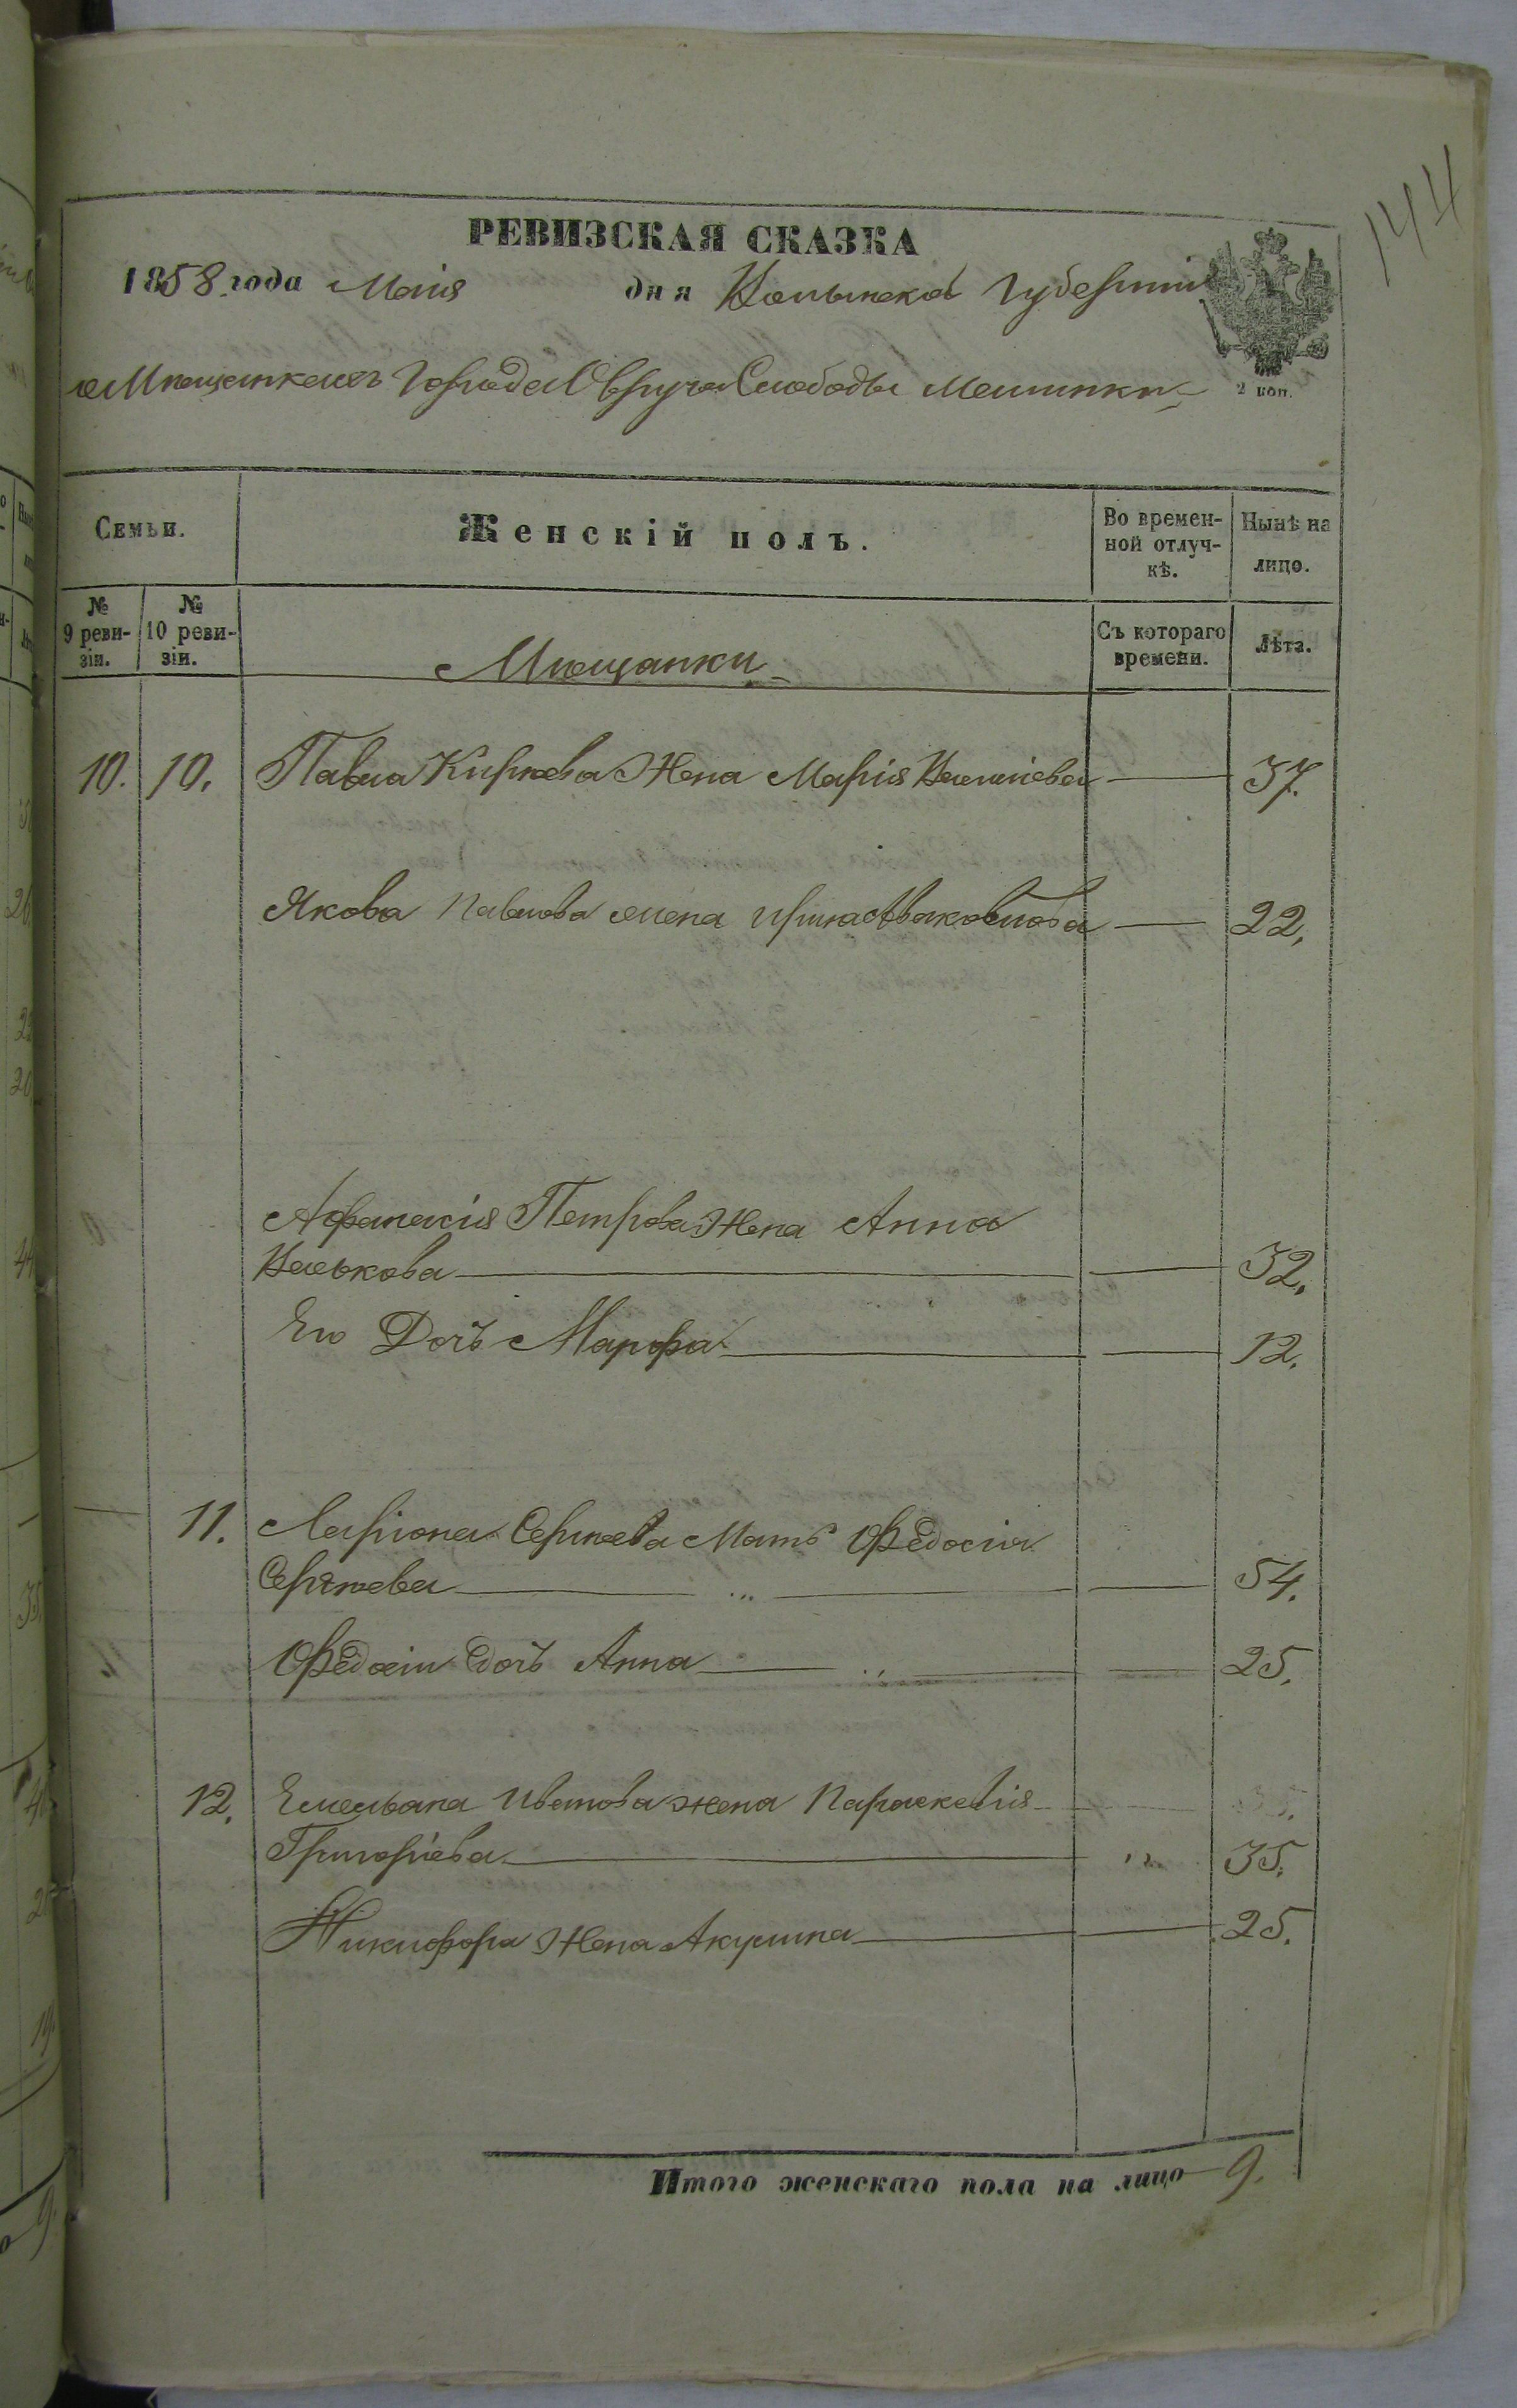 144
РЕВИЗСКАЯ СКАЗКА
1858 года Маія дня Волынской Губерніи
о Мѣщанкахъ Города Овруча Слободы
2 коп.
Семьи. Женскій полъ. Во времен-ной отлуч-кѣ. Нынѣ на лицо.
№ 9 реви-зіи. № 10 реви-зіи. Мѣщанки Съ котораго времени. Лѣта.
10. 10. Павла Кирѣева Жена Марія 37.
Якова Павлова жена Ирина 22,
Афанасія Петрова Жена Анна
32.
Его Дочь Марфа 12.
11. Ларіона Сергѣева Мать Федосія
Сергѣева 54.
Федосіи дочь Анна 25.
12. Емельяна Иванова жена Параскевія
Григоріева 35.
Никифора Жена Акулина 25.
Итого женскаго пола на лицо 9.